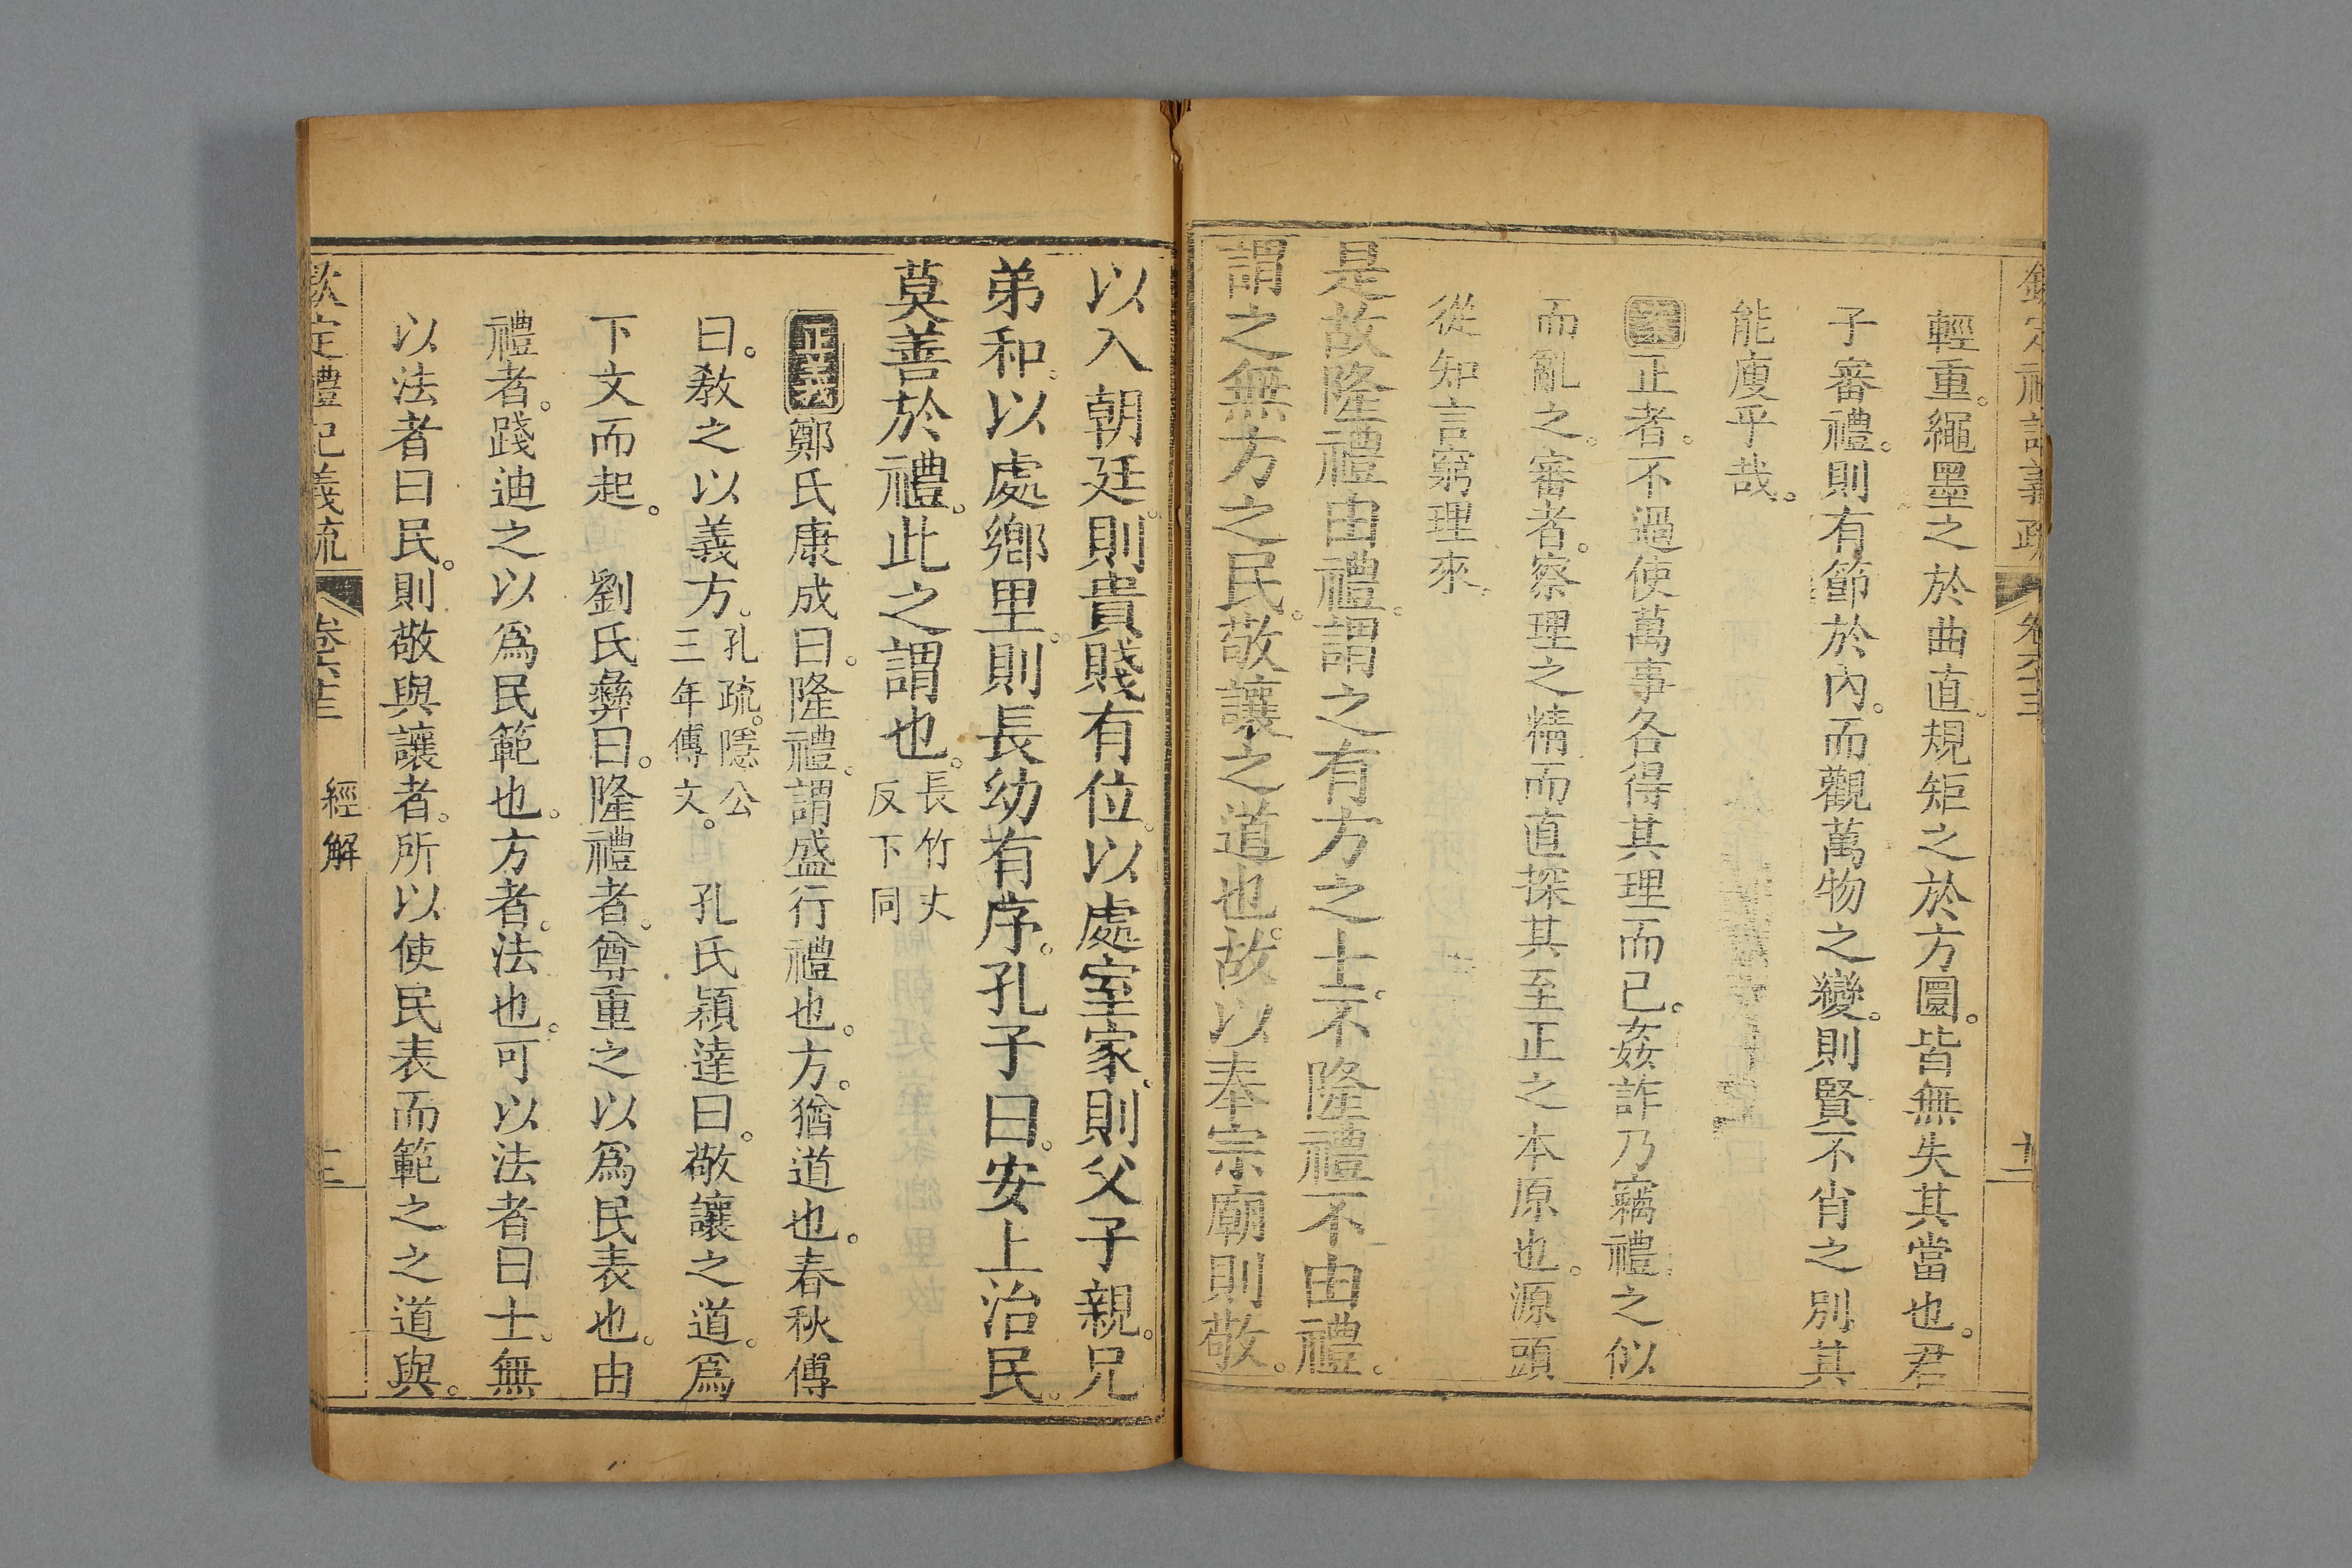 欽定禮記義疏 卷六十三 十二
輕重。繩墨之於曲直。規矩之於方圜。皆無失其當也。君
子審禮。則有節於內。而觀萬物之變。則賢不肖之別。其
能廋乎哉。
案正者。不過使萬事各得其理而已。姦詐乃竊禮之似
而亂之。審者。察理之精。而直探其至正之本原也。源頭
從知言窮理來。
是故隆禮由禮。謂之有方之士。不隆禮不由禮。
謂之無方之民。敬讓之道也。故以奉宗廟則敬。
以入朝廷。則貴賤有位。以處室家。則父子親。兄
弟和。以處鄉里。則長幼有序。孔子曰。安上治民。
莫善於禮。此之謂也。長竹丈反下同
正義鄭氏康成曰。隆禮。謂盛行禮也。方。猶道也。春秋傳
曰。敎之以義方。孔疏。隱公三年傳文。 孔氏穎達曰。敬讓之道。爲
下文而起。 劉氏彝曰。隆禮者。尊重之以爲民表也。由
禮者。踐迪之以爲民範也。方者。法也。可以法者曰士。無
以法者曰民。則敬與讓者。所以使民表而範之之道與。
欽定禮記義疏 卷六十三 經解 十三